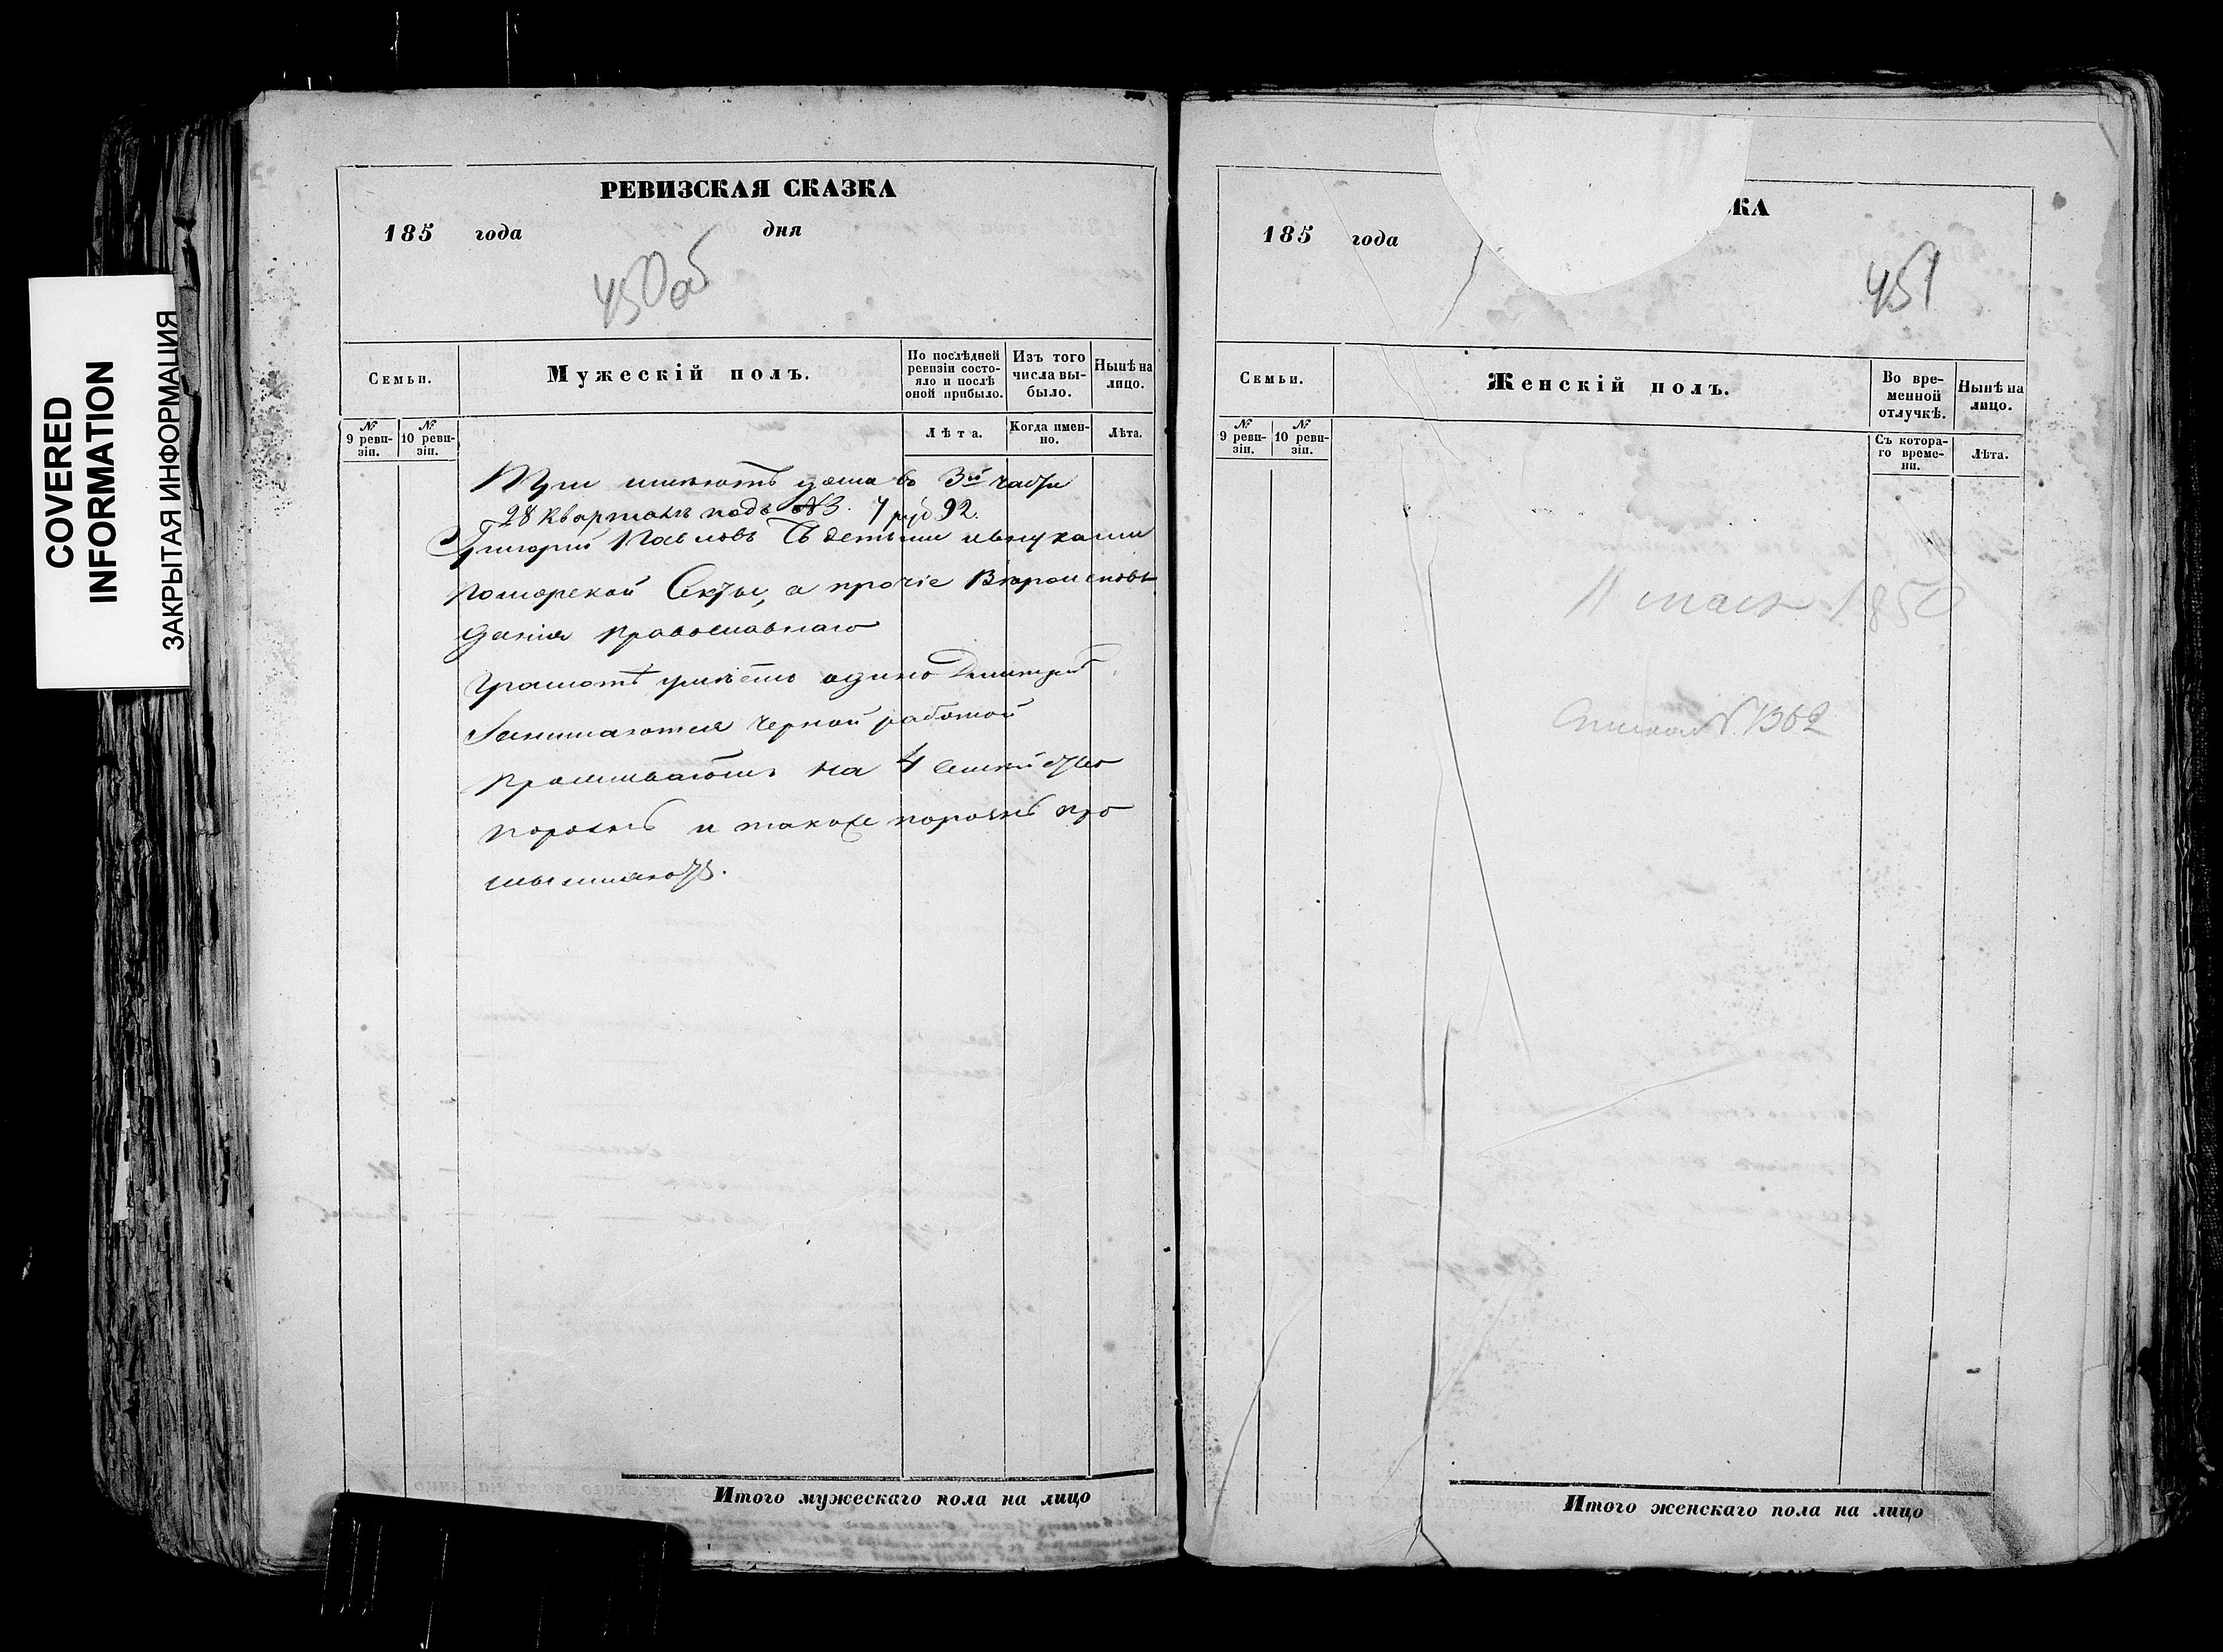 COVERED
INFORMATION
ЗАКРЫТАЯ ИНФОРМАЦИЯ
РЕВИЗСКАЯ СКАЗКА
185 года дня
450об
Семьи.
Мужескій полъ.
По послѣдней ревизіи состояло и послѣ оной прибыло.
Изъ того числа выбыло.
Нынѣ на лицо.
№ 9 ревизіи.
№ 10 ревизіи.
Лѣта.
Когда именно.
Лѣта.
имѣютъ дома въ 3й части
28 Кварталѣ подъ №3. 7 руб 92.
Григорій Павловъ съ детьми и внуками
поморской Секты, а прочіе Вѣроисповѣ
данія православнаго
грамотѣ умѣетъ одинъ Дмитрій
Занимаются черной работой
на 4 семейство
порознь и также порознь про
мышляютъ.
Итого мужескаго пола на лицо
КА
185 года
451
Семьи.
Женскій полъ.
Во временной отлучкѣ.
Нынѣ на лицо.
№ 9 ревизіи.
№ 10 ревизіи.
Съ котораго времени.
Лѣта.
11 мая 1850
№ 1362
Итого женскаго пола на лицо